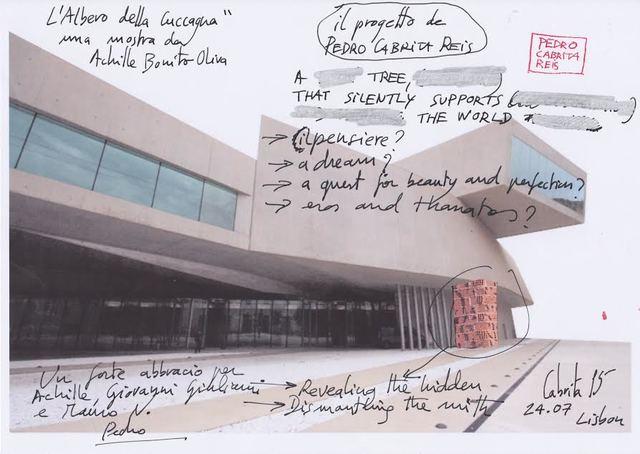 L'Albero della Cuccagna"
una mostra da
Achille Bonito Oliva
il progetto de
PEDRO CABRITA REIS
PEDRO
CABRITA
REIS
A TREE,
THAT SILENTLY SUPPORTS
THE WORLD
→ il pensiere?
→ a dream?
→ a quest for beauty and perfection?
→ eros and thanatos?
Un forte abbraccio per
Achille, Giovanni Giuliani
e Mauro N.
Pedro
→ Revealing the hidden
→ Dismantling the mith
Cabrita 15
24.07
Lisbon